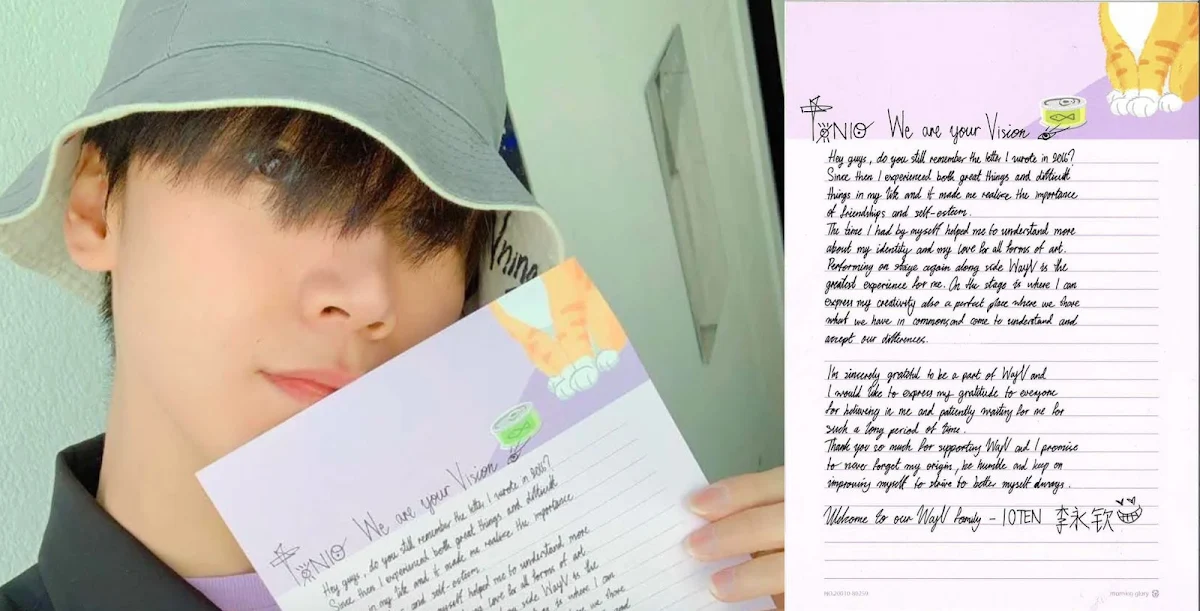 We are your Vision
Hey guys, do you still remember the letter I wrote in 2016?
Since then I experienced both great things and difficult
things in my life and it made me realize the importance
of friendships and self-esteem.
The time I had by myself helped me to understand more
about my identity and my love for all forms of art.
Performing on stage again along side WayV is the
greatest experience for me. On the stage is where I can
express my creativity also a perfect place where we share
what we have in common and come to understand and
accept our differences.
I'm sincerely grateful to be a part of WayV and
I would like to express my gratitude to everyone
for believing in me and patiently waiting for me for
such a long period of time.
Thank you so much for supporting WayV and I promise
to never forget my origin, be humble and keep on
improving myself to strive to better myself always.
Welcome to our WayV family - 10TEN 李永钦
We are your Vision
Hey guys, do you still remember the letter I wrote in 2016?
Since then I experienced both great things and difficult
things in my life and it made me realize the importance
of friendships and self-esteem.
The time I had by myself helped me to understand more
about my identity and my love for all forms of art.
Performing on stage again along side WayV is the